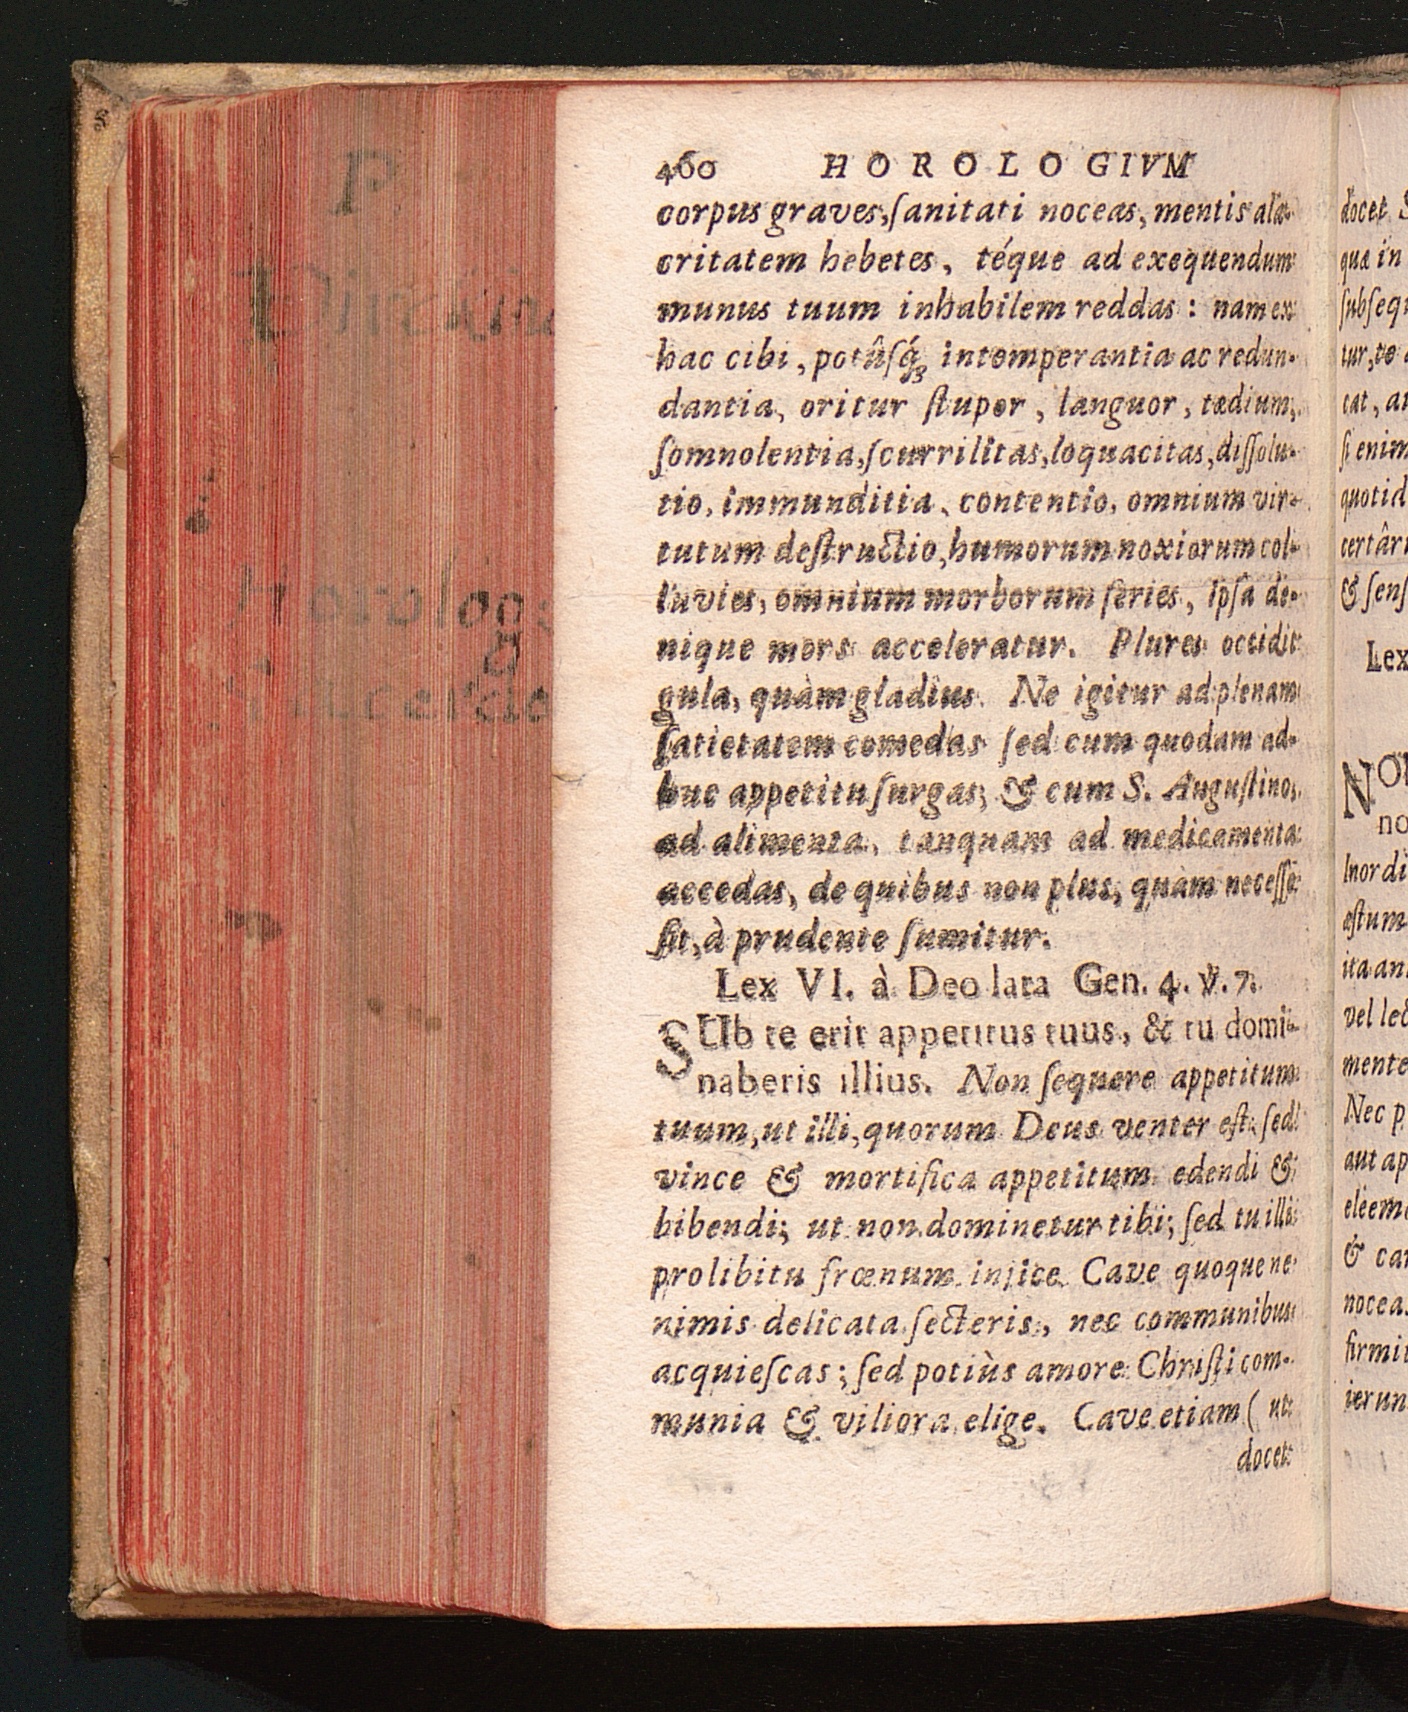 460 HOROLOGIVM
corpus graves, ſanitati noceas, mentis ala-
critatem hebetes, téque ad exequendum
munus tuum inhabilem reddas: nam ex
hac cibi, potûſq́ꝫ intemperantia ac redun-
dantia, oritur ſtupor, languor, tædium,
ſomnolentia, ſcurrilitas, loquacitas, diſſolu-
tio, immunditia, contentio, omnium vir-
tutum deſtructio, humorum noxiorum col-
luvies, omnium morborum ſeries, ipſa de-
nique mors acceleratur. Plures occidit
gula, quàm gladius. Ne igitur ad plenam
ſatietatem comedas ſed cum quodam ad-
huc appetitu ſurgas; & cum S. Auguſtino,
ad alimenta, tanquam ad medicamenta
accedas, de quibus non plus, quàm neceſſe
ſit, à prudente ſumitur.
Lex VI. à Deo lata Gen. 4. v. 7.
SUb te erit appetitus tuus, & tu domi-
naberis illius. Non ſequere appetitum
tuum, ut illi, quorum Deus venter eſt: ſed
vince & mortifica appetitum edendi &
bibendi; ut non dominetur tibi; ſed tu illi
pro libitu frœnum injice. Cave quoque ne
nimis delicata ſecteris, nec communibus
acquieſcas; ſed potiùs amore Chriſti com-
munia & viliora elige. Cave etiam (ut
docet
docet
qua in
ſubſeq
tur, te
cat, a
ſi enim
quotid
certâ
& ſenſ
Lex
NO
no
Inordi
æſtum
ita an
vel lec
mente
Nec p
aut ap
eleem
& ca
nocea
firmi
ierun
P.
Horolog